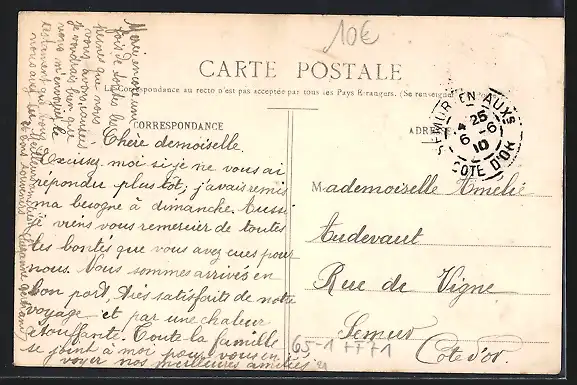 10€
CARTE POSTALE
La Correspondance au recto n'est pas acceptée par tous les Pays Etrangers. (Se renseigner
CORRESPONDANCE
ADRE
SEMUR EN AUXs
25
4 6
6 10
COTE D'OR
Chère demoiselle
Excusez moi si je ne vous ai
répondu plus tôt; j'avais remis
ma besogne à dimanche. Aussi
je viens vous remercier de toutes
les bontés que vous avez eues pour
nous. Nous sommes arrivés en
bon port, très satisfaits de notre
voyage et par une chaleur
étouffante. Toute la famille
se joint à moi pour vous en
voyer nos meilleures amitiés
Merci encore une
fois de toutes les
peines que nous
vous avons
Je voudrais
Mademoiselle Amelie
Audevaut
Rue de Vigne
Semur
Cote d'or.
65-1